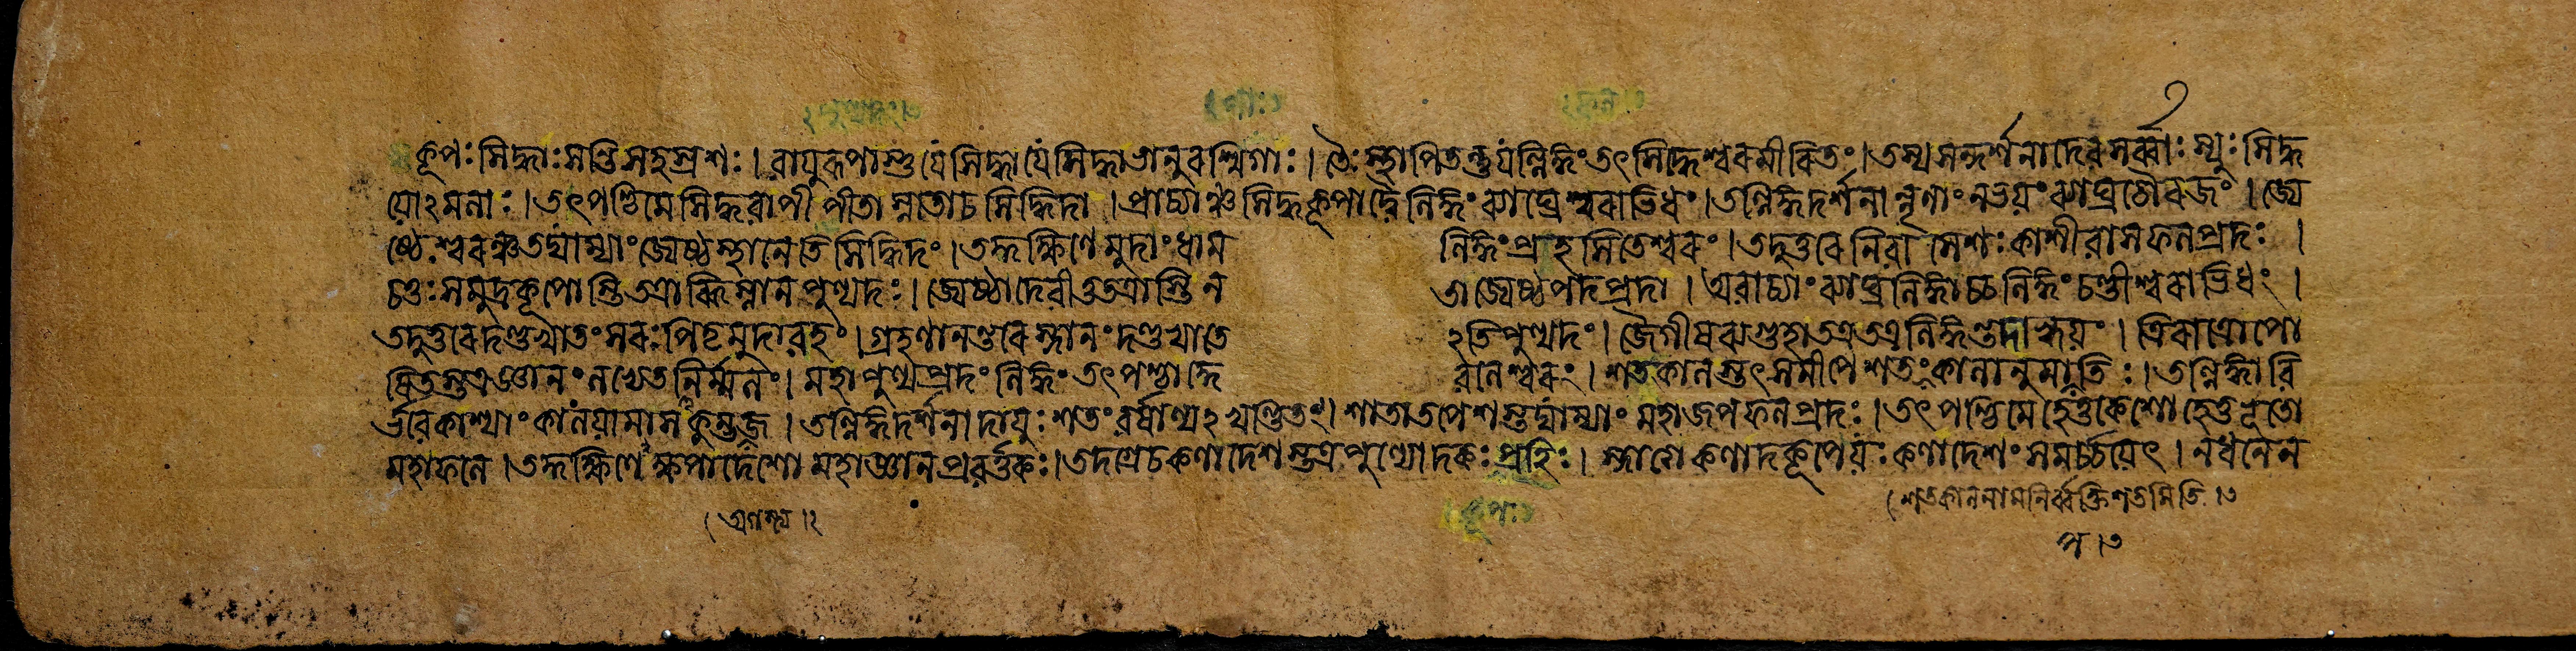 কূপঃ সিদ্ধাঃ সন্তি সহস্রশঃ । বায়ুরূপাশ্চ যে সিদ্ধা যে সিদ্ধা ভানুরশ্মিগাঃ । তৈঃ স্থাপিতন্তু যল্লিঙ্গং তৎ সিদ্ধেশ্বরমীরিতং । তস্য সন্দর্শনাদেব সর্ব্বাঃ স্যুঃ সিদ্ধ
য়োঽমলাঃ । তৎপশ্চিমে সিদ্ধবাপী পীতা স্নাতা চ সিদ্ধিদা । প্রাচ্যাঞ্চ সিদ্ধকূপাদ্বৈ লিঙ্গং ব্যাঘ্রেশ্বরাভিধং । তল্লিঙ্গদর্শনান্নৃণাং ন ভয়ং ব্যাঘ্রচৌরজং । জ্যে
ষ্ঠেশ্বরঞ্চ তদ্যাম্যাং জ্যেষ্ঠস্থানেতিসিদ্ধিদং । তদ্দক্ষিণে মুদাং ধাম লিঙ্গং প্রহসিতেশ্বরং । তদুত্তরে নিবাসেশঃ কাশীবাসফলপ্রদঃ ।
চণ্ডঃ সমুদ্রকূপোস্তি তত্রাব্ধিস্নানপুণ্যদঃ । জ্যেষ্ঠা দেবী তু তত্রাস্তি নতা জ্যেষ্ঠপদপ্রদা । অবাচ্যাং ব্যাঘ্রলিঙ্গাচ্চ লিঙ্গং চণ্ডীশ্বরাভিধং ।
তদুত্তরে দণ্ডখাতং সরঃ পিতৃমুদাবহং । গ্রহণানন্তরে স্নানং দণ্ডখাতেঽতিপুণ্যদং । জৈগীষব্যগুহা তত্র তত্র লিঙ্গন্তদাহ্বয়ং । ত্রিরাত্রোপো
ষিতস্তত্র জ্ঞানং লভেত নির্ম্মলং । মহাপুণ্যপ্রদং লিঙ্গং তৎপশ্চাদ্দেবলেশ্বরং । শতকালস্তৎসমীপে শতং কালানুমাপতিঃ । তল্লিঙ্গাবি
র্ভবে কাশ্যাং কালয়ামাস কুম্ভজ । তল্লিঙ্গদর্শনাদায়ুঃ শতং বর্ষাণ্যঽখণ্ডিতং । শাতাতপেশস্তদ্যাম্যাং মহাজপফলপ্রদঃ । তৎপশ্চিমে হেতুকেশো হেতুভূতো
মহাফলে । তদ্দক্ষিণেক্ষপাদেশো মহাজ্ঞানপ্রবর্ত্তকঃ । তদগ্রে চ কণাদেশস্তত্র পুণ্যোদকঃ প্রহিঃ । স্নাত্বা কণাদকূপে যঃ কণাদেশং সমর্চ্চয়েৎ । ন ধনেন
শতকালনামনির্ব্বক্তি শতমিতি ।৩
কূপঃ